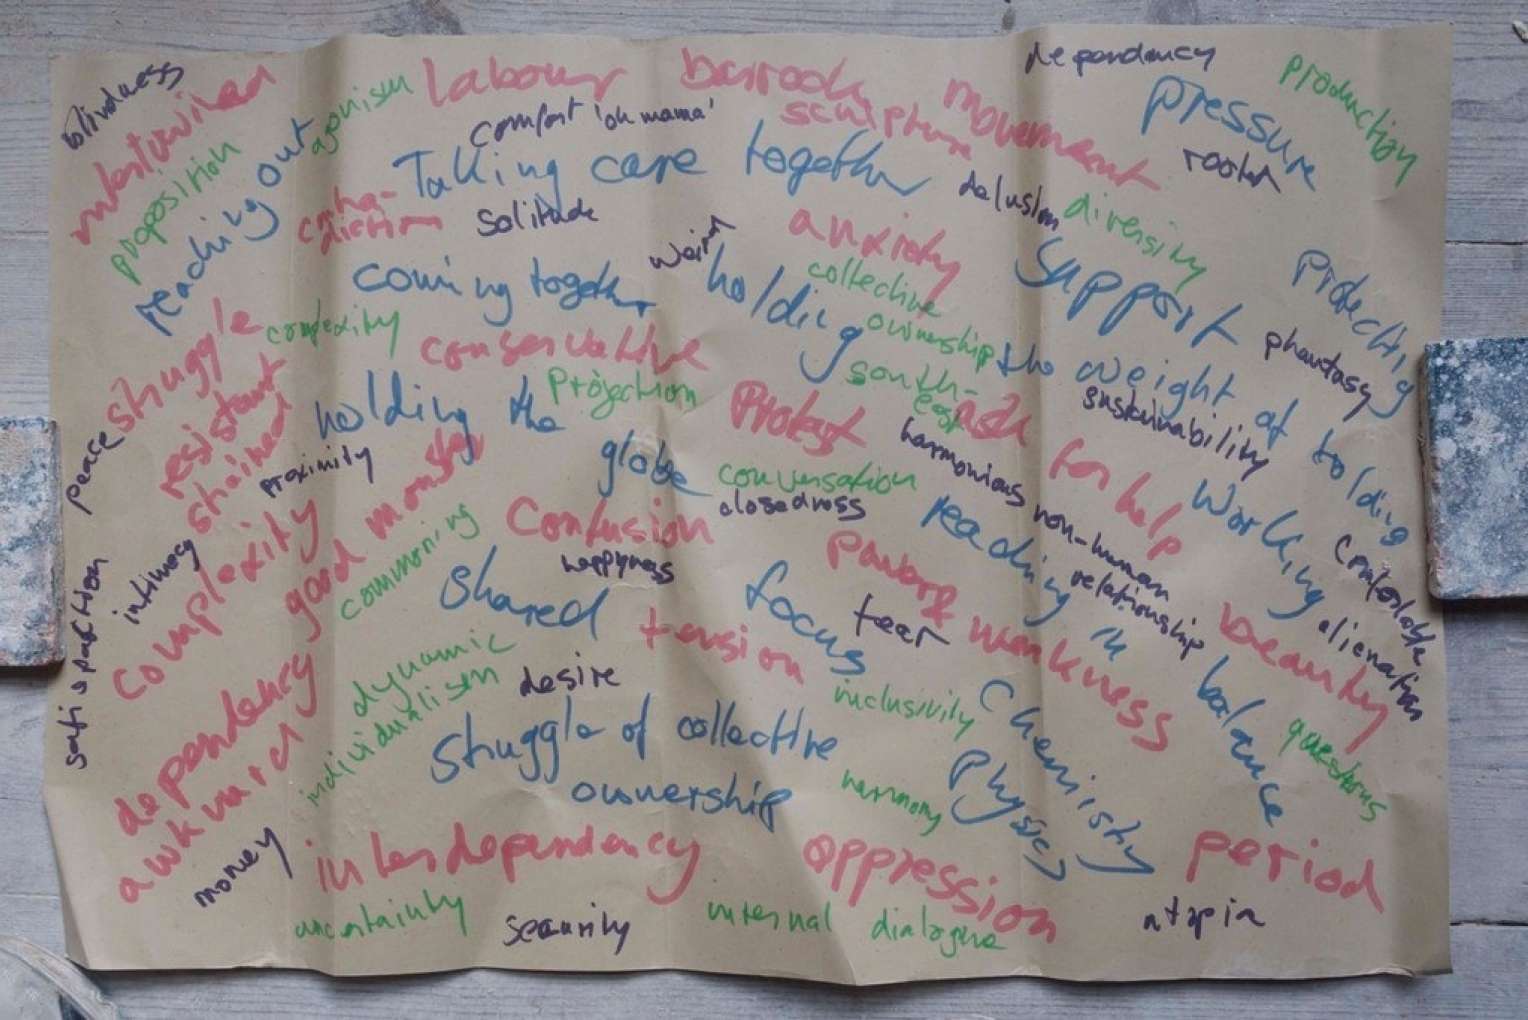 blindness
intertwined
proposition
reaching out
agonism
labour
comfort 'oh mama'
barock
sculpture
movement
dependency
pressure
production
rooted
Taking care together
contra-
diction
solitude
delusion
diversity
anxiety
weird
coming together
holding
collective
ownership
support
protecting
phantasy
struggle
complexity
conservative
projection
south-
east
the weight of
holding
sustainability
resistant
strained
peace
proximity
holding the
globe
Protest
ask for help
harmonious
conversation
closedness
good monster
commoning
confusion
happyness
reading in
non-human
relationship
working
comfortable
alienation
intimacy
satispaction
complexity
shared
tension
focus
tear
power & weakness
beauty
balance
questions
dynamic
individualism
desire
inclusivity
Chemistry
physics
dependency
awkward
struggle of collective
ownership
harmony
money
interdependency
oppression
period
uncertainty
security
internal dialogue
utopia